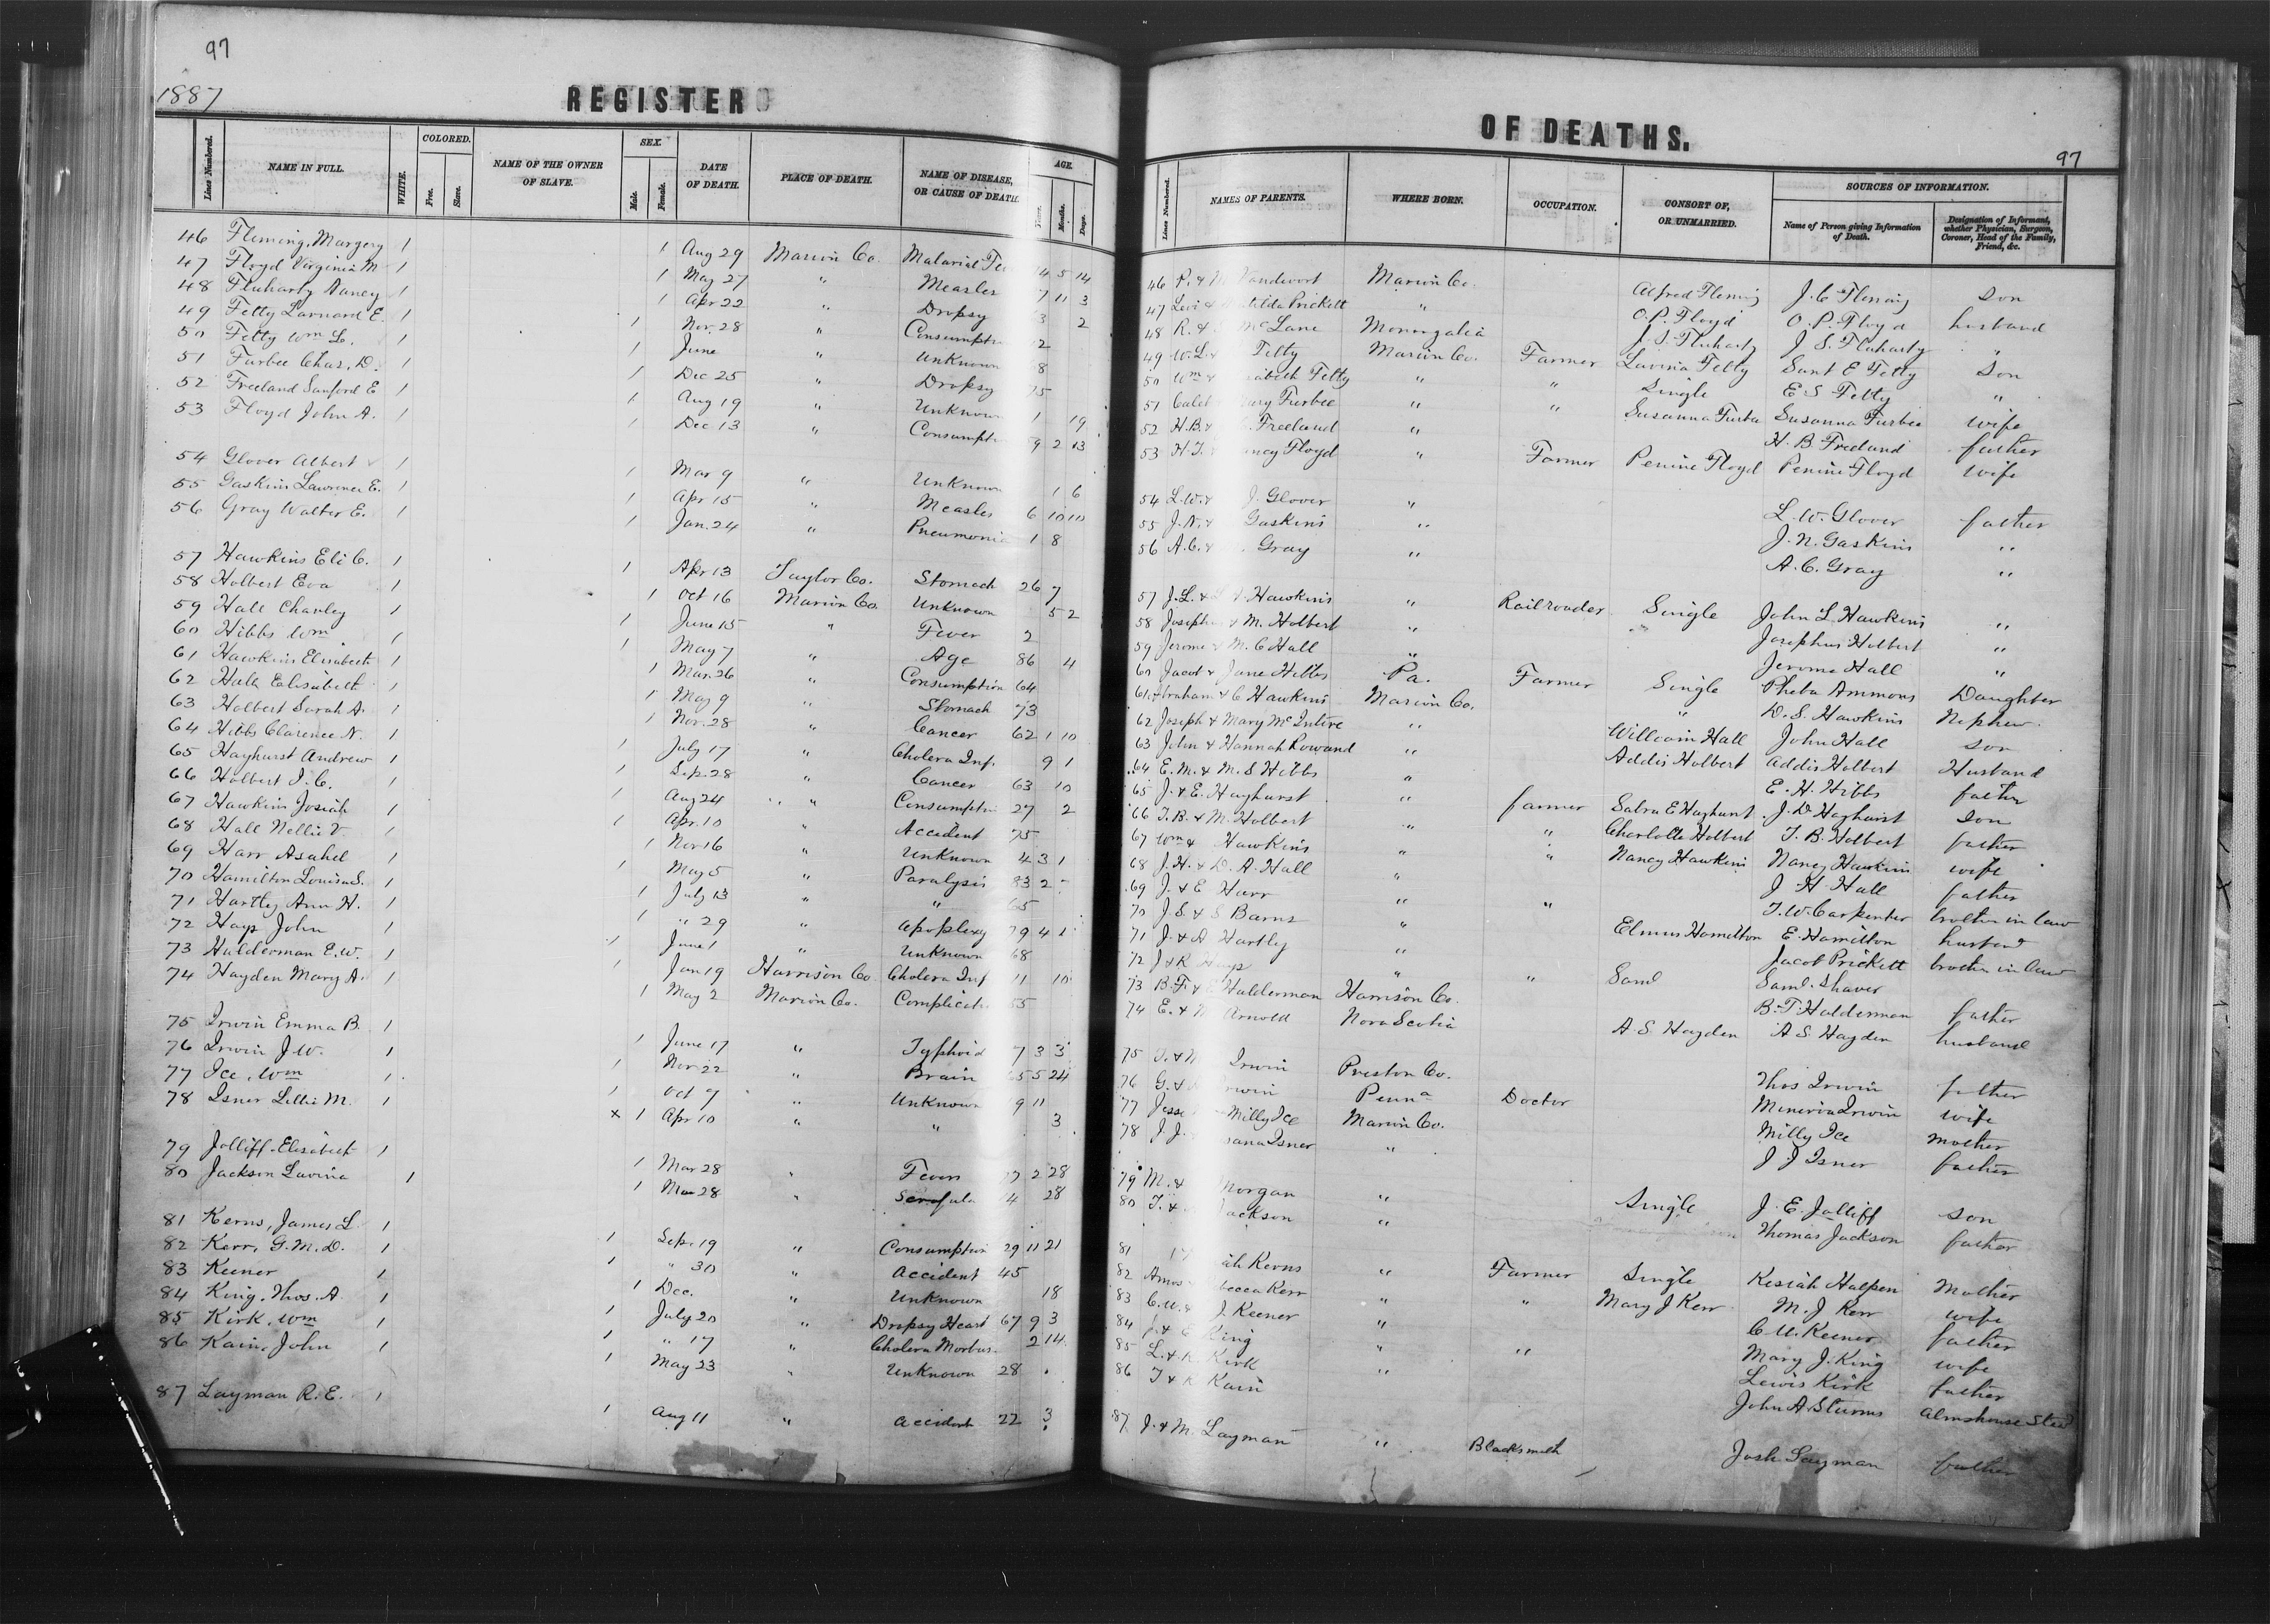 97
1887
REGISTER
Lines Numbered. NAME IN FULL. WHITE. COLORED. Free. Slave. NAME OF THE OWNER OF SLAVE. SEX. Male. Female. DATE OF DEATH. PLACE OF DEATH. NAME OF DISEASE, OR CAUSE OF DEATH. AGE. Years. Months. Days.
46 Fleming, Margery 1 1 Aug 29 Marion Co. Malarial 4 5 14
47 Floyd Virginia M 1 1 May 27 " Measles 7 11 3
48 Fluharty Nancy 1 1 Apr 22 " Dropsy 3 2
49 Fetty Larnard E. 1 1 Nov. 28 " Consumpti 2
50 Fetty Wm L. 1 1 June " Unknown 8
51 Furbee Chas. D. 1 1 Dec 25 " Dropsy 75
52 Freeland Sanford E 1 1 Aug 19 " Unknown 1 19
53 Floyd John A. 1 1 Dec 13 " Consumpti 9 2 13
54 Glover Albert 1 1 Mar 9 " Unknown 1 6
55 Gaskins Lawrence E. 1 1 Apr 15 " Measles 6 10 10
56 Gray Walter E. 1 1 Jan. 24 " Pneumonia 1 8
57 Hawkins Eli C. 1 1 Apr 13 Taylor Co. Stomach 26 7
58 Holbert Eva 1 1 Oct 16 Marion Co. Unknown 5 2
59 Hall Charley 1 1 June 15 " Fever 2
60 Hibbs Wm 1 1 May 7 " Age 86 4
61 Hawkins Elisabeth 1 1 Mar. 26 " Consumption 64
62 Hall Elisabeth 1 1 May 9 " Stomach 73
63 Holbert Sarah A. 1 1 Nov. 28 " Cancer 62 1 10
64 Hibbs Clarence N. 1 1 July 17 " Cholera Inf. 9 1
65 Hayhurst Andrew 1 1 Sep. 28 " Cancer 63 10
66 Holbert I. C. 1 1 Aug 24 " Consumpti 27 2
67 Hawkins Josiah 1 1 Apr. 10 " Accident 75
68 Hall Nellie V. 1 1 Nov 16 " Unknown 4 3 1
69 Harr Asahel 1 1 May 5 " Paralysis 83 2 -
70 Hamilton Louisa S. 1 1 July 13 " " 65
71 Hartley Ann H. 1 1 " 29 " Apoplexy 79 4 1
72 Hays John 1 1 June 1 " Unknown 68
73 Hulderman E. W. 1 1 Jan 19 Harrison Co. Cholera Inf 11 10
74 Hayden Mary A. 1 1 May 2 Marion Co. Complicat. 55
75 Irwin Emma B. 1 1 June 17 " Typhoid 7 3 3
76 Irwin J. W. 1 1 Nov 22 " Brain 65 5 24
77 Ice, Wm 1 1 Oct 9 " Unknown 19 11
78 Isner Lillie M. 1 x 1 Apr 10 " " 3
79 Jolliff Elisabeth 1 1 Mar 28 " Fever 77 2 28
80 Jackson Lavina 1 1 Mar 28 " Scrofula 4 28
81 Kerns, James L. 1 1 Sep. 19 " Consumption 29 11 21
82 Kerr, G. M. D. 1 1 " 30 " Accident 45
83 Keener 1 1 Dec. " Unknown 18
84 King, Thos. A. 1 1 July 20 " Dropsy Heart 67 9 3
85 Kirk, Wm 1 1 " 17 " Cholera Morbus. 2 14
86 Kain, John 1 1 May 23 " Unknown 28
87 Layman R. E. 1 1 Aug 11 " Accident 22 3
OF DEATHS.
97
Lines Numbered. NAMES OF PARENTS. WHERE BORN. OCCUPATION. CONSORT OF, OR UNMARRIED. SOURCES OF INFORMATION. Name of Person giving Information of Death. Designation of Informant, whether Physician, Surgeon, Coroner, Head of the Family, Friend, &c.
46 P. & Vandevort Marion Co. Alfred Fleming J. C Fleming Son
47 Levi & tilda Prickett " O. P. Floyd O. P. Floyd husband
48 R. & McLane Monongalia J. S. Fluharty J S. Fluharty "
49 W. L. & Fetty Marion Co. Farmer Lavina Fetty Sant E Fetty Son
50 Wm & abeth Fetty " " Single E S Fetty "
51 Caleb ary Furbee " " Susanna Furbee Susanna Furbee Wife
52 H. B. & Freeland " H. B Freeland father
53 H. T. ncy Floyd " Farmer Penine Floyd Penine Floyd Wife
54 L. W. & J. Glover " L. W. Glover father
55 J. N. & Gaskins " J. N. Gaskins "
56 A. C. & Gray " A. C. Gray "
57 J. L. & Hawkins " Railroader Single John L Hawkins "
58 Josephus & M. Holbert " Josephus Holbert "
59 Jerome & M. C Hall " Jerome Hall "
60 Jacob & Jane Hibbs Pa. Farmer Single Pheba Ammons Daughter
61 Abraham & C Hawkins Marion Co. " D. S. Hawkins Nephew.
62 Joseph & Mary McIntire " William Hall John Hall Son
63 John & Hannah Rowand " Addis Holbert Addis Holbert Husband
64 E. M. & M. S Hibbs " E. H. Hibbs father
65 J. & E. Hayhurst " farmer Sabra E Hayhurst J. D. Hayhurst Son
66 T. B. & M. Holbert " " Charlotte Holbert T. B. Holbert father
67 Wm & Hawkins " " Nancy Hawkins Nancy Hawkins wife
68 J. H. & D. A. Hall " J H Hall father
69 J. & E Harr " " T. W. Carpenter brother in law
70 J. S. & S Barns " Elmus Hamilton E. Hamilton husband
71 J. & A Hartly " Jacob Prickett brother in law
72 J & R Hays " " Saml Saml. Shaver
73 B. F. & E Hulderman Harrison Co. B. T. Halderman father
74 E. & Arnold Nova Scotia A. S Hayden A S. Hayden husband
75 T. & Irwin Preston Co. Thos Irwin father
76 G. & rwin Penna Doctor Minerva Irwin Wife
77 Jesse Milly Ice Marion Co. Milly Ice Mother
78 J. J. sana Isner " J J Isner father
79 M. & Morgan " Single J. E. Jolliff son
80 T. & Jackson " Thomas Jackson father
81 ah Kerns " Farmer Single Kesiah Halpen Mother
82 Amos becca Kerr " " Mary J Kerr M. J Kerr wife
83 C. U. & J. Keener " C. U. Keener father
84 J. & E King " " Mary J. King wife
85 L. & Kirk " Lewis Kirk father
86 T & Kain John A. Sturms Almshouse Stew
87 J. & M. Layman " Blacksmith Josh Layman father